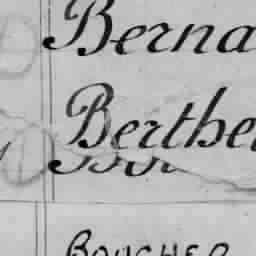 Berna
Berthe
BOUCHER